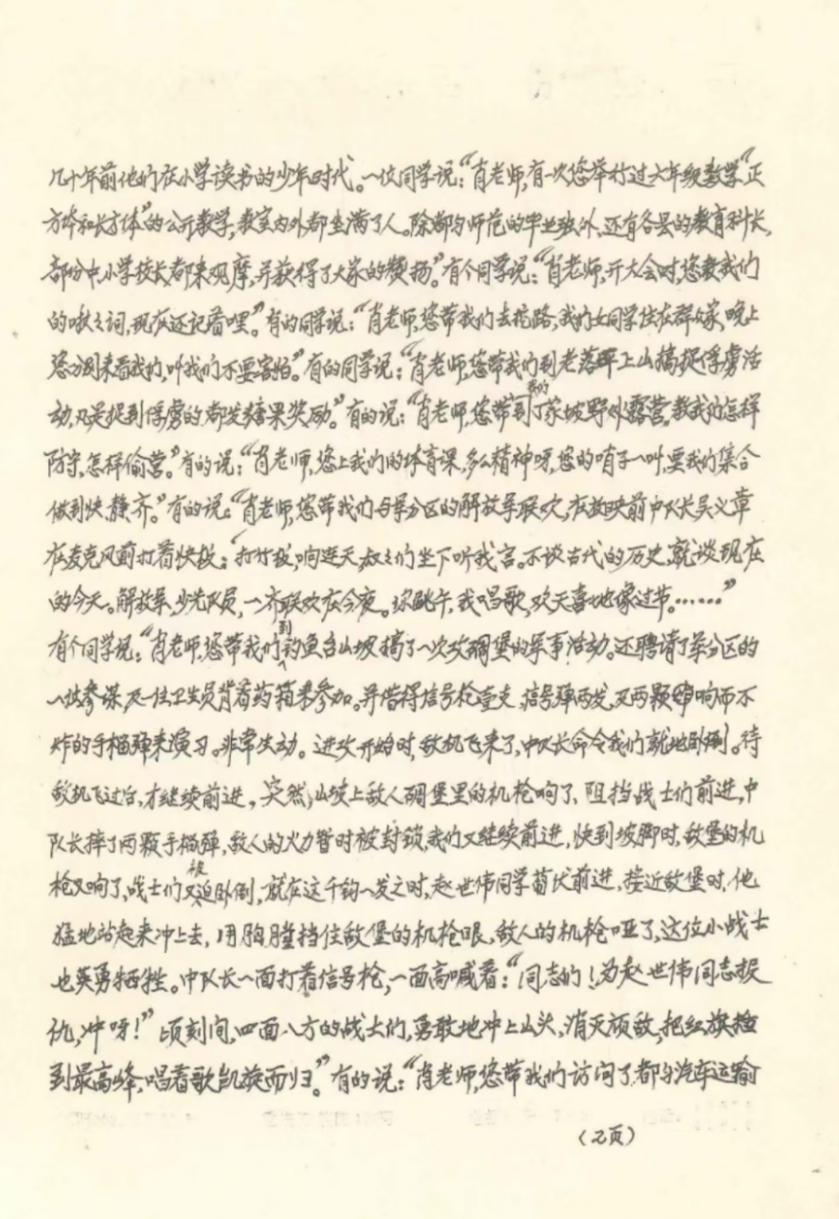 几十年前他们在小学读书的少年时代。一位同学说：“肖老师，有一次您举行过六年级数学“正
方体和长方体”的公开教学，教室内外都坐满了人。除都匀师范的毕业班外，还有各县的教育科长，
部份中小学校长都来观摩，并获得了大家的赞扬。”有个同学说：“肖老师，开大会时，您教我们
的啾啾词，现在还记着哩。”有的同学说：“肖老师，您带我们去挖路，我们女同学住在群众家，晚上
您都来看我们，叫我们不要害怕。”有的同学说：“肖老师，您带我们到老落坪上山搞捉俘虏活
动，凡是捉到俘虏的都发糖果奖励。”有的说：“肖老师，您带到丁家坡野外露营。教我们怎样
防守，怎样偷营。”有的说：“肖老师，您上我们的体育课，多么精神呀，您的哨子一叫，要我们集合
做到快、静、齐。”有的说：“肖老师，您带我们与军分区的解放军联欢，在放映前中队长吴义章
在麦克风前打着快板：‘打竹板，响连天，叔叔们坐下听我言。不谈古代的历史，就谈现在
的今天。解放军，少先队员，一齐联欢在今夜。你跳午，我唱歌，欢天喜地像过节。……”
有个同学说：“肖老师，您带我们到钓鱼台山坡搞了一次攻碉堡的军事活动。还聘请了军分区的
一位参谋，及一位卫生员背着药箱来参加。并借得信号枪壹支，信号弹两发，又两颗响而不
炸的手榴弹来演习。非常生动。进攻开始时，敌机飞来了，中队长命令我们就地卧倒。待
敌机飞过后，才继续前进，突然，山坡上敌人碉堡里的机枪响了，阻挡战士们前进，中
队长摔了两颗手榴弹，敌人的火力暂时被封锁，我们又继续前进，快到坡脚时，敌堡的机
枪又响了，战士们又被迫卧倒，就在这千钧一发之时，赵世伟同学匍伏前进，接近敌堡时，他
猛地站起来冲上去，用胸膛挡住敌堡的机枪眼，敌人的机枪哑了，这位小战士
也英勇牺牲。中队长一面打着信号枪，一面高喊着：“同志们！为赵世伟同志报
仇，冲呀！”顷刻间，四面八方的战士们，勇敢地冲上山头，消灭顽敌，把红旗插
到最高峰，唱着歌凯旋而归。”有的说：“肖老师，您带我们访问了都匀汽车运输
（2页）